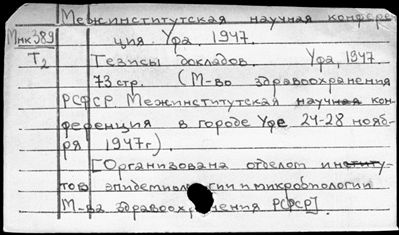 Межинститутская научная конфере
Мнк389 ция. Уфа. 1947.
Т2 Тезисы докладов. Уфа, 1947.
73 стр. (М-во здравоохранения
РСФСР. Межинститутская научная кон-
ференция в городе Уфе 24-28 нояб-
ря 1947г).
[Организована отделом институ-
тов эпидемиологии и микробиологии
М-ва здравоохранения РСФСР].